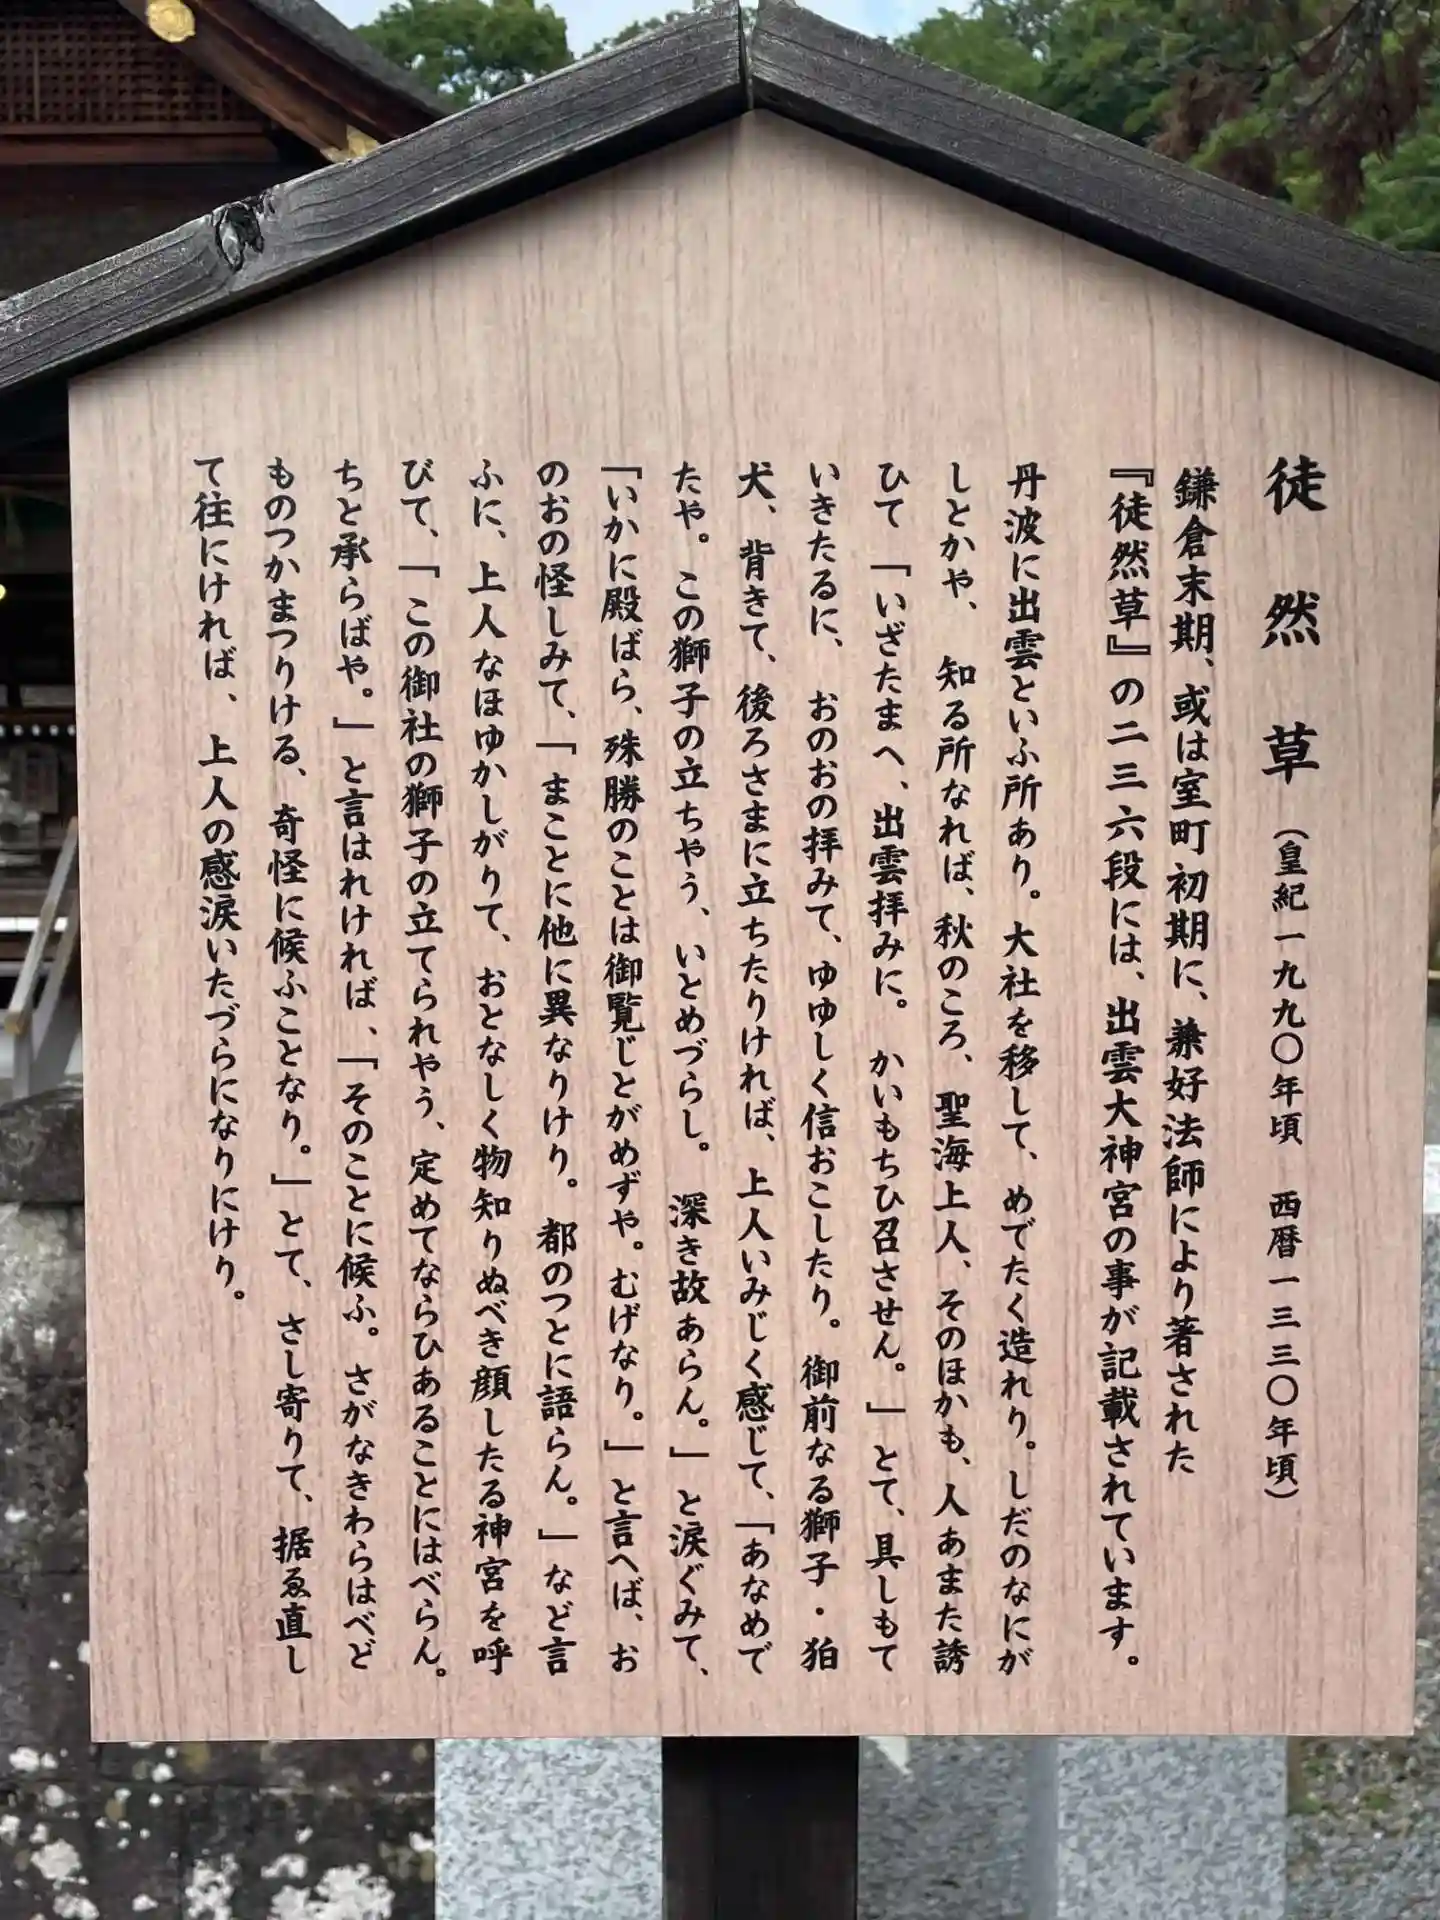 徒然草(皇紀一九九〇年頃 西暦一三三〇年頃)
鎌倉末期、或は室町初期に、兼好法師により著された
『徒然草』の二三六段には、出雲大神宮の事が記載されています。
丹波に出雲といふ所あり。大社を移して、めでたく造れり。しだのなにが
しとかや、知る所なれば、秋のころ、聖海上人、そのほかも、人あまた誘
ひて「いざたまへ、出雲拝みに。かいもちひ召させん。」とて、具しもて
いきたるに、おのおの拝みて、ゆゆしく信おこしたり。御前なる獅子・狛
犬、背きて、後ろさまに立ちたりければ、上人いみじく感じて、「あなめで
たや。この獅子の立ちやう、いとめづらし。深き故あらん。」と涙ぐみて、
「いかに殿ばら、殊勝のことは御覧じとがめずや。むげなり。」と言へば、お
のおの怪しみて、「まことに他に異なりけり。都のつとに語らん。」など言
ふに、上人なほゆかしがりて、おとなしく物知りぬべき顔したる神宮を呼
びて、「この御社の獅子の立てられやう、定めてならひあることにはべらん。
ちと承らばや。」と言はれければ、「そのことに候ふ。さがなきわらはべど
ものつかまつりける、奇怪に候ふことなり。」とて、さし寄りて、据ゑ直し
て往にければ、上人の感涙いたづらになりにけり。